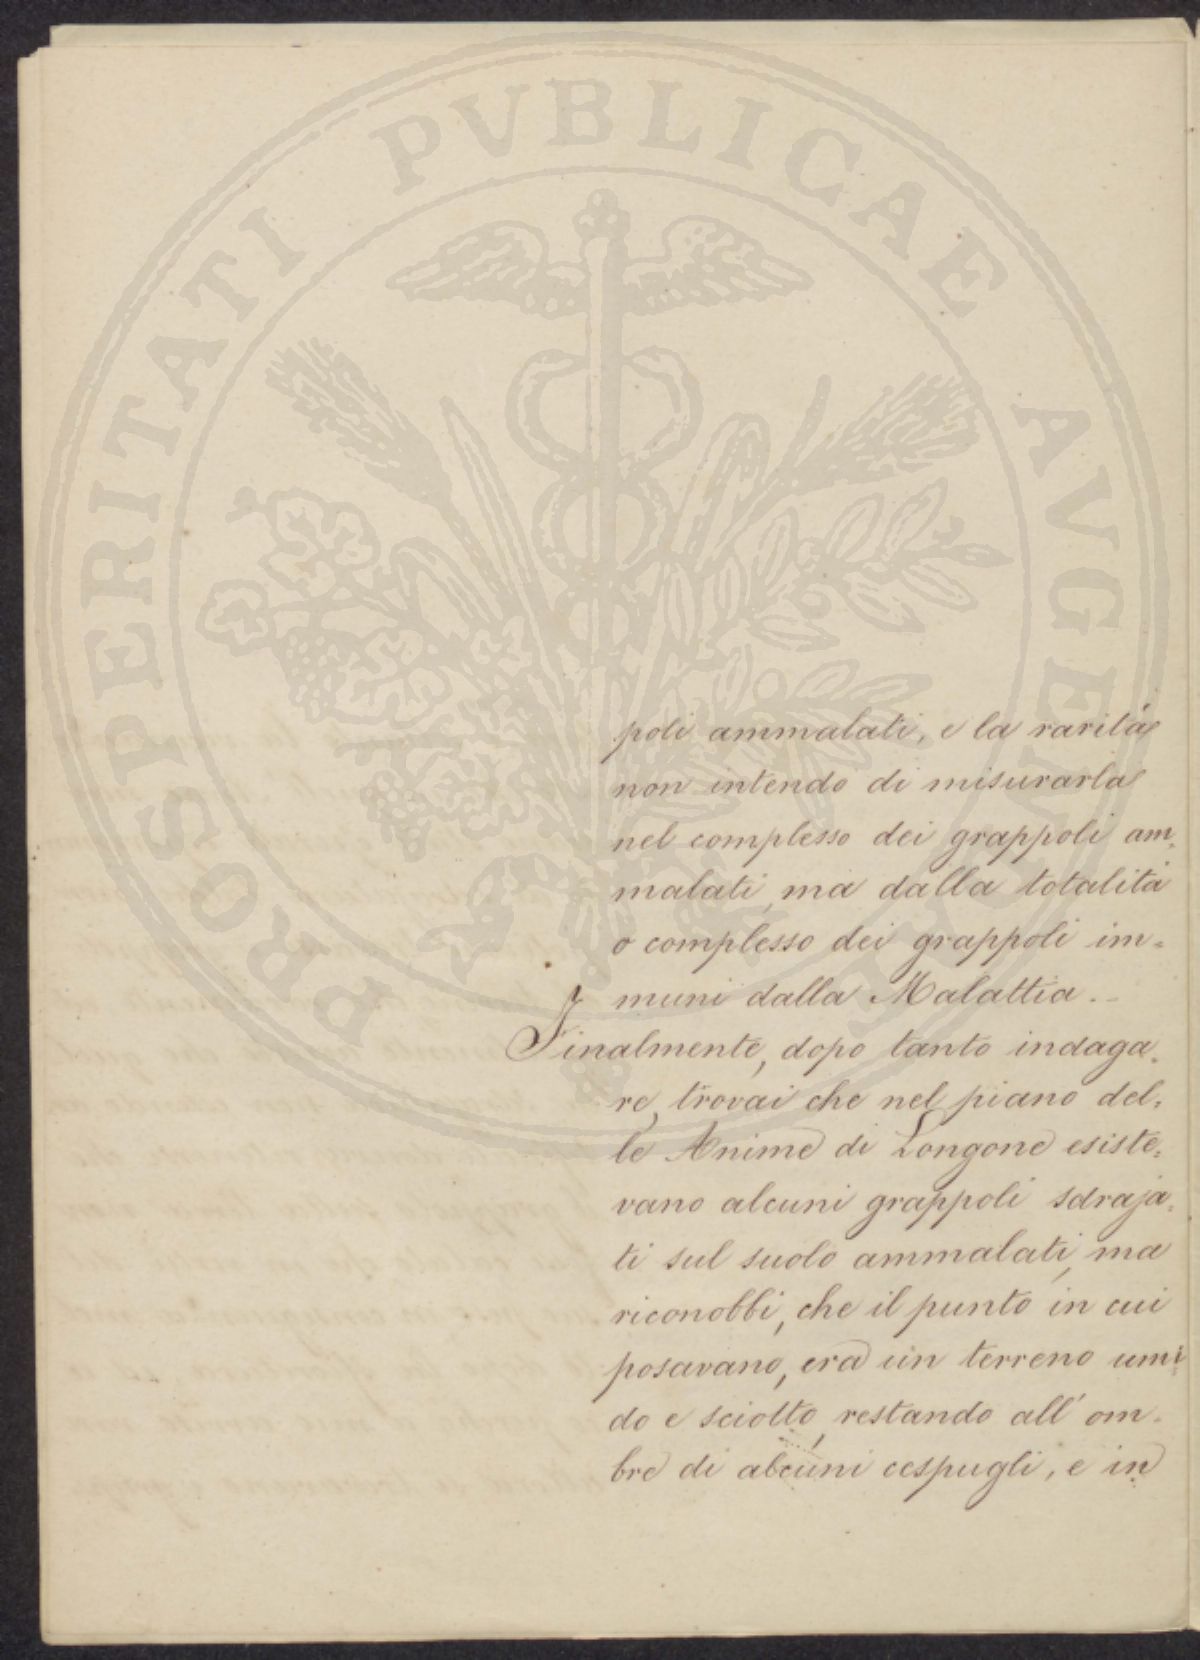 PROSPERITATI PVBLICAE AVGENDAE
poli ammalati, e la rarità
non intendo di misurarla
nel complesso dei grappoli am=
malati, ma dalla totalità
o complesso dei grappoli im=
muni dalla Malattia.
Finalmente, dopo tanto indaga=
re, trovai che nel piano del=
le Anime di Longone esiste=
vano alcuni grappoli sdraja=
ti sul suolo ammalati, ma
riconobbi, che il punto in cui
posavano, era un terreno umi=
do e sciolto, restando all' om=
bre di alcuni cespugli, e in